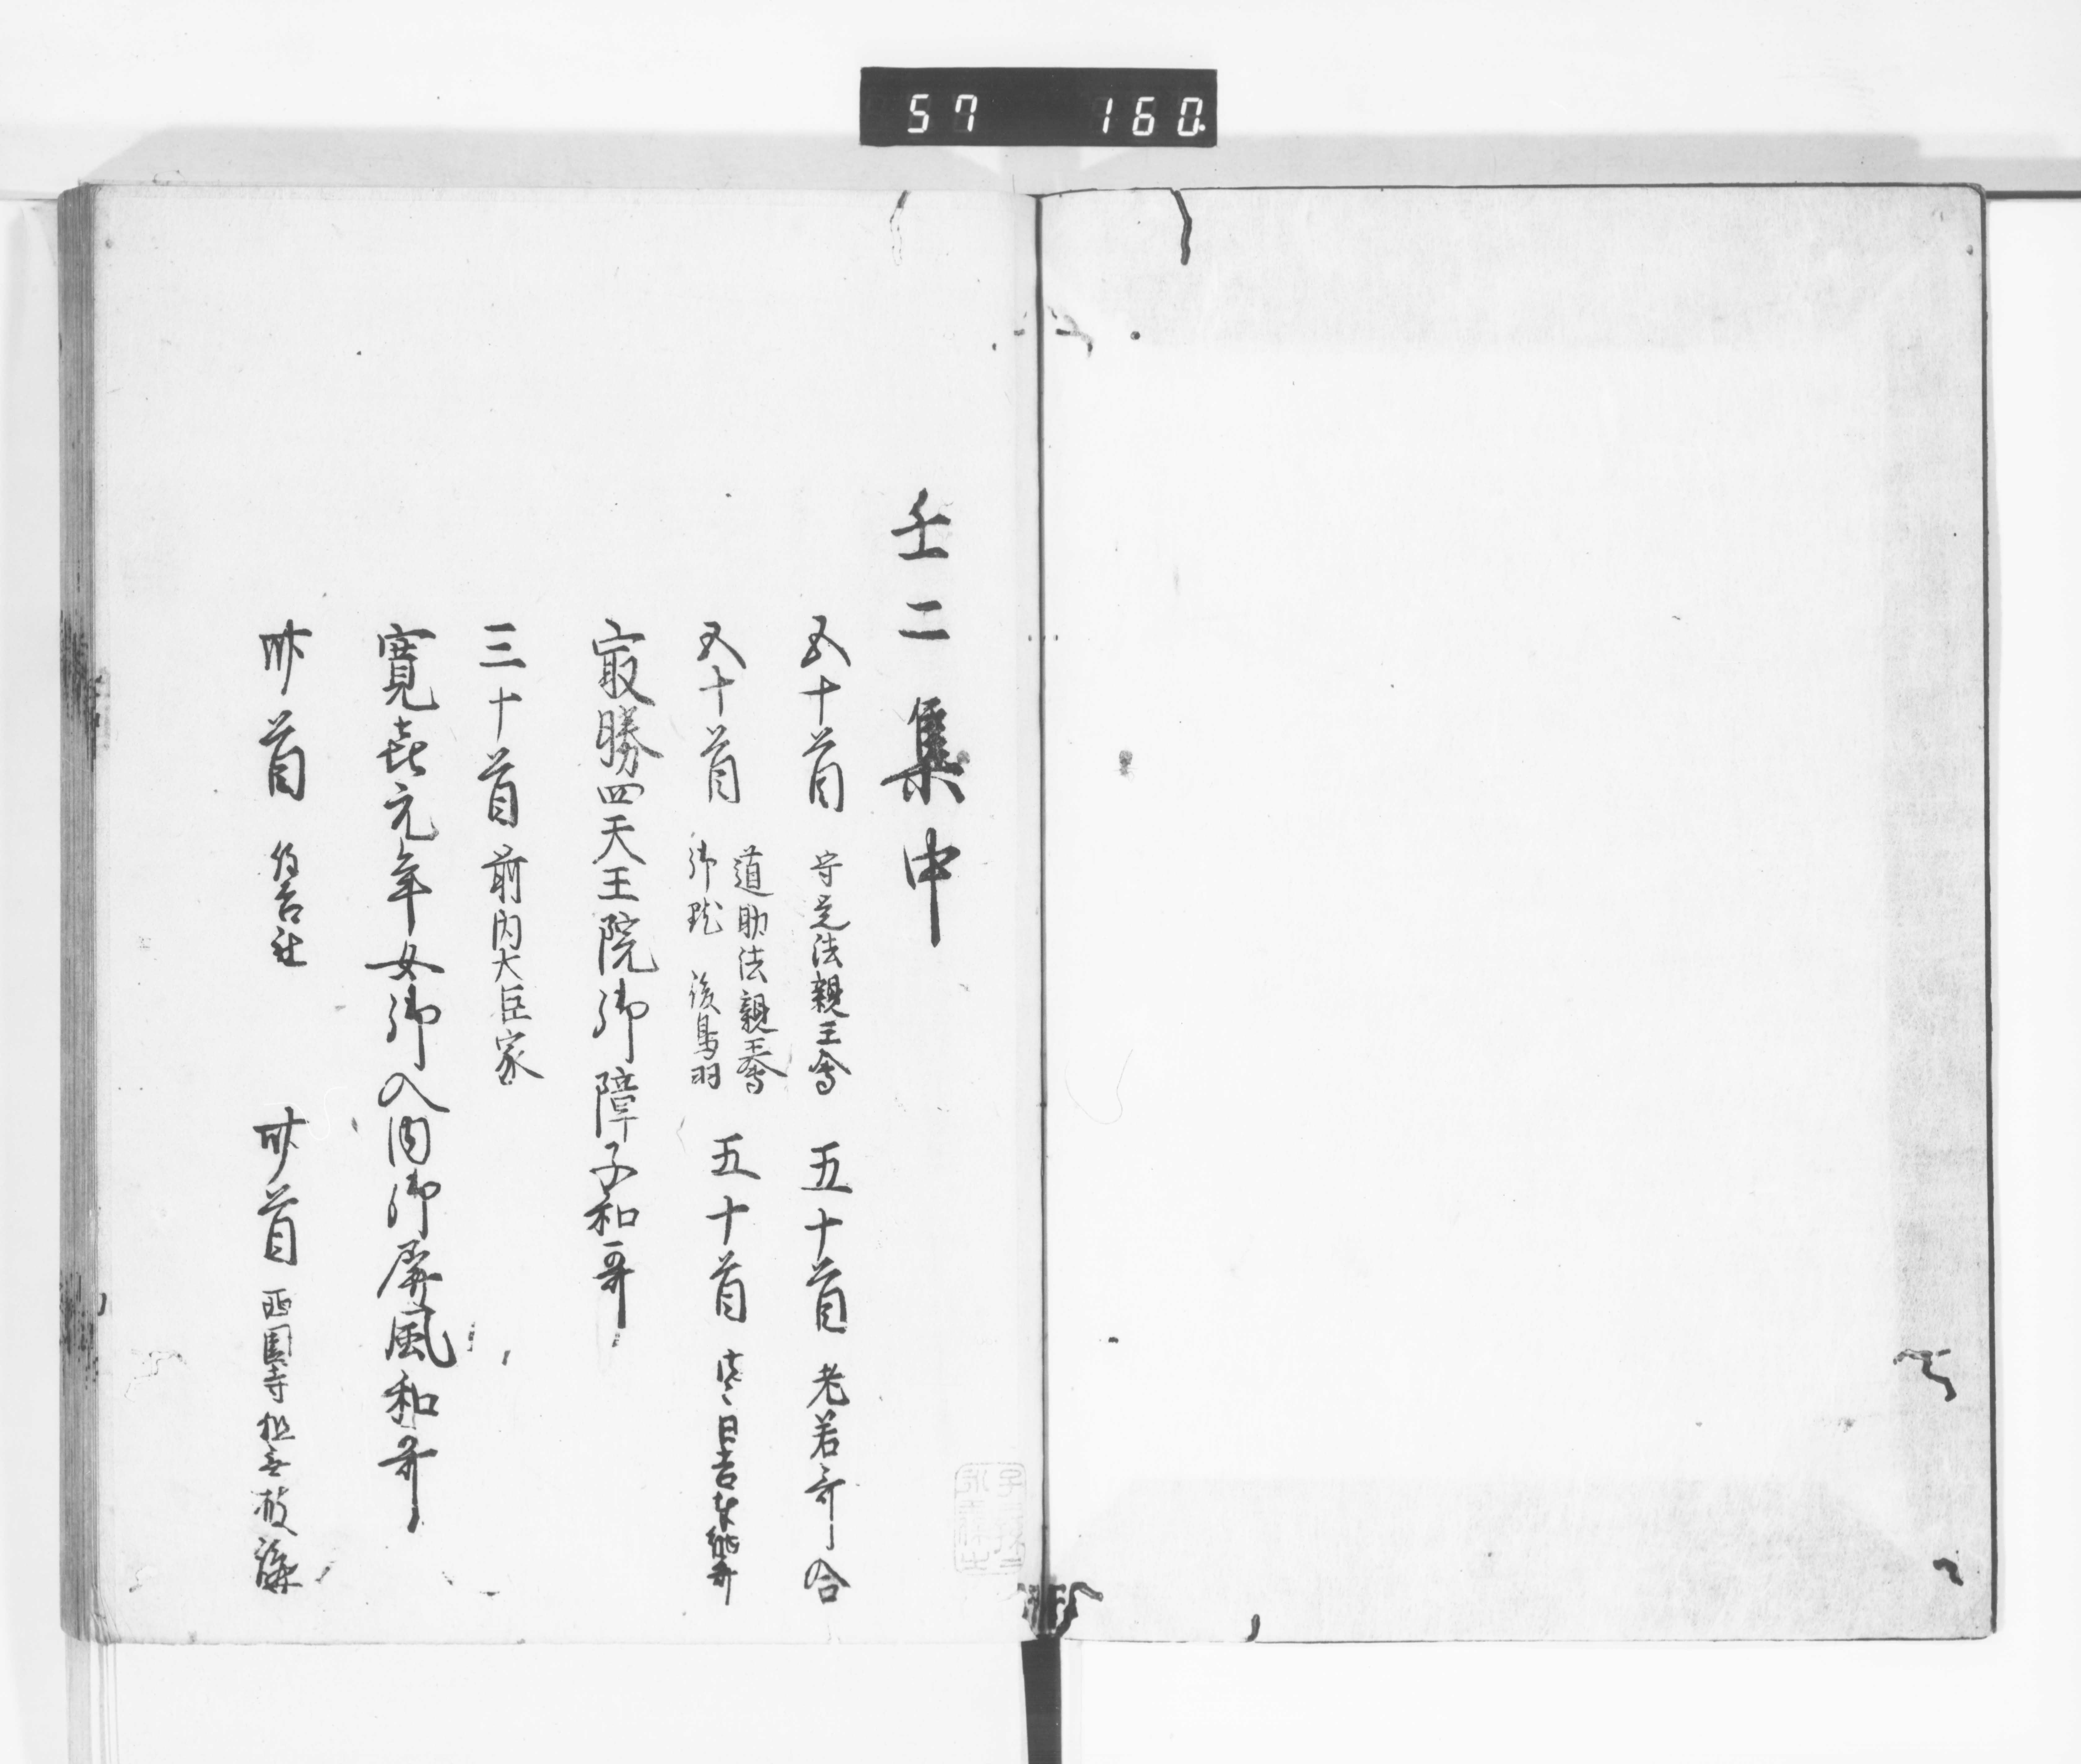 57 160
壬二集中
五十首 守覚法親王會 五十首 老若哥合
五十首 道助法親王會
御點 後鳥羽
五十首 日吉奉納哥
㝡勝四天王院御障子和哥
三十首 前内大臣家
寛喜元年女御入内御屏風和哥
卅首 住吉社 卅首 西園寺